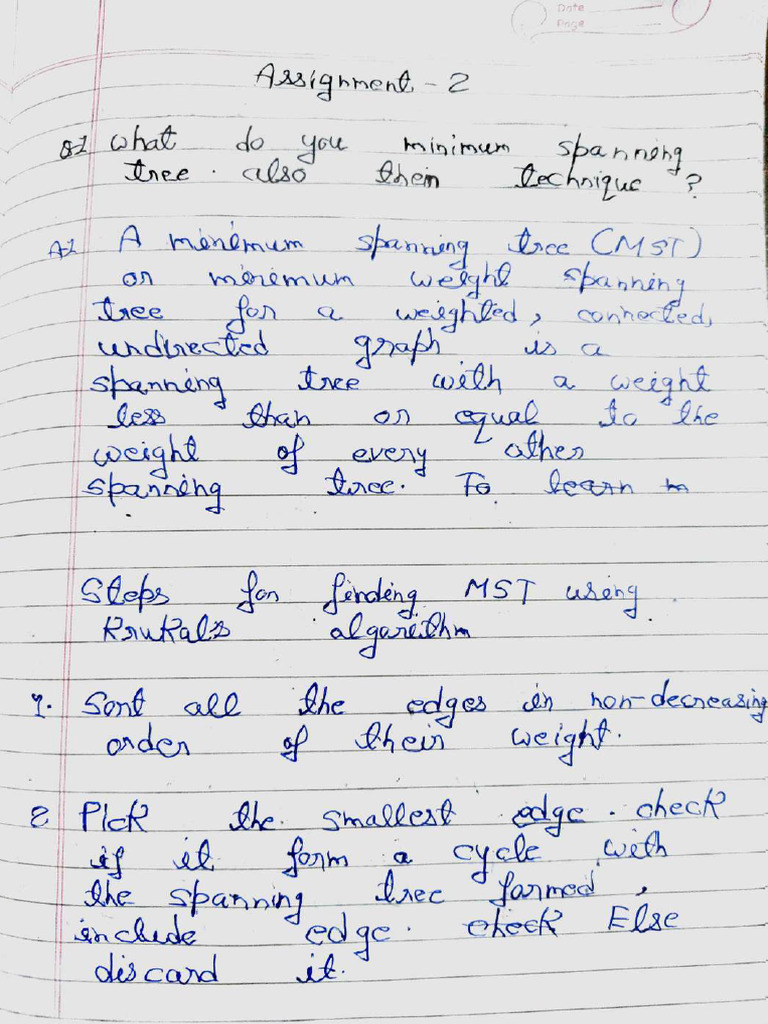 Date
Page
Assignment - 2
Q1 What do you minimum spanning
tree. also them technique ?
A1 A minimum spanning tree (MST)
or minimum weight spanning
tree for a weighted, connected,
undirected graph is a
spanning tree with a weight
less than or equal to the
weight of every other
spanning tree. To learn m
Steps for finding MST using
Krukals algorithm
1. Sort all the edges in non-decreasing
order of their weight.
2 Pick the smallest edge. check
if it form a cycle with
the spanning tree formed,
include edge. check Else
discard it.